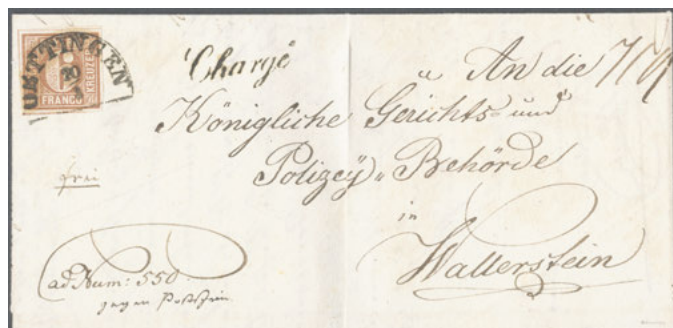 OETTINGEN
20
FRANCO
KREUZER
Chargé
An die
Königliche Gerichts- und
Polizey-Behörde
in
Wallerstein
frei
ad Num: 550
gegen Postschein